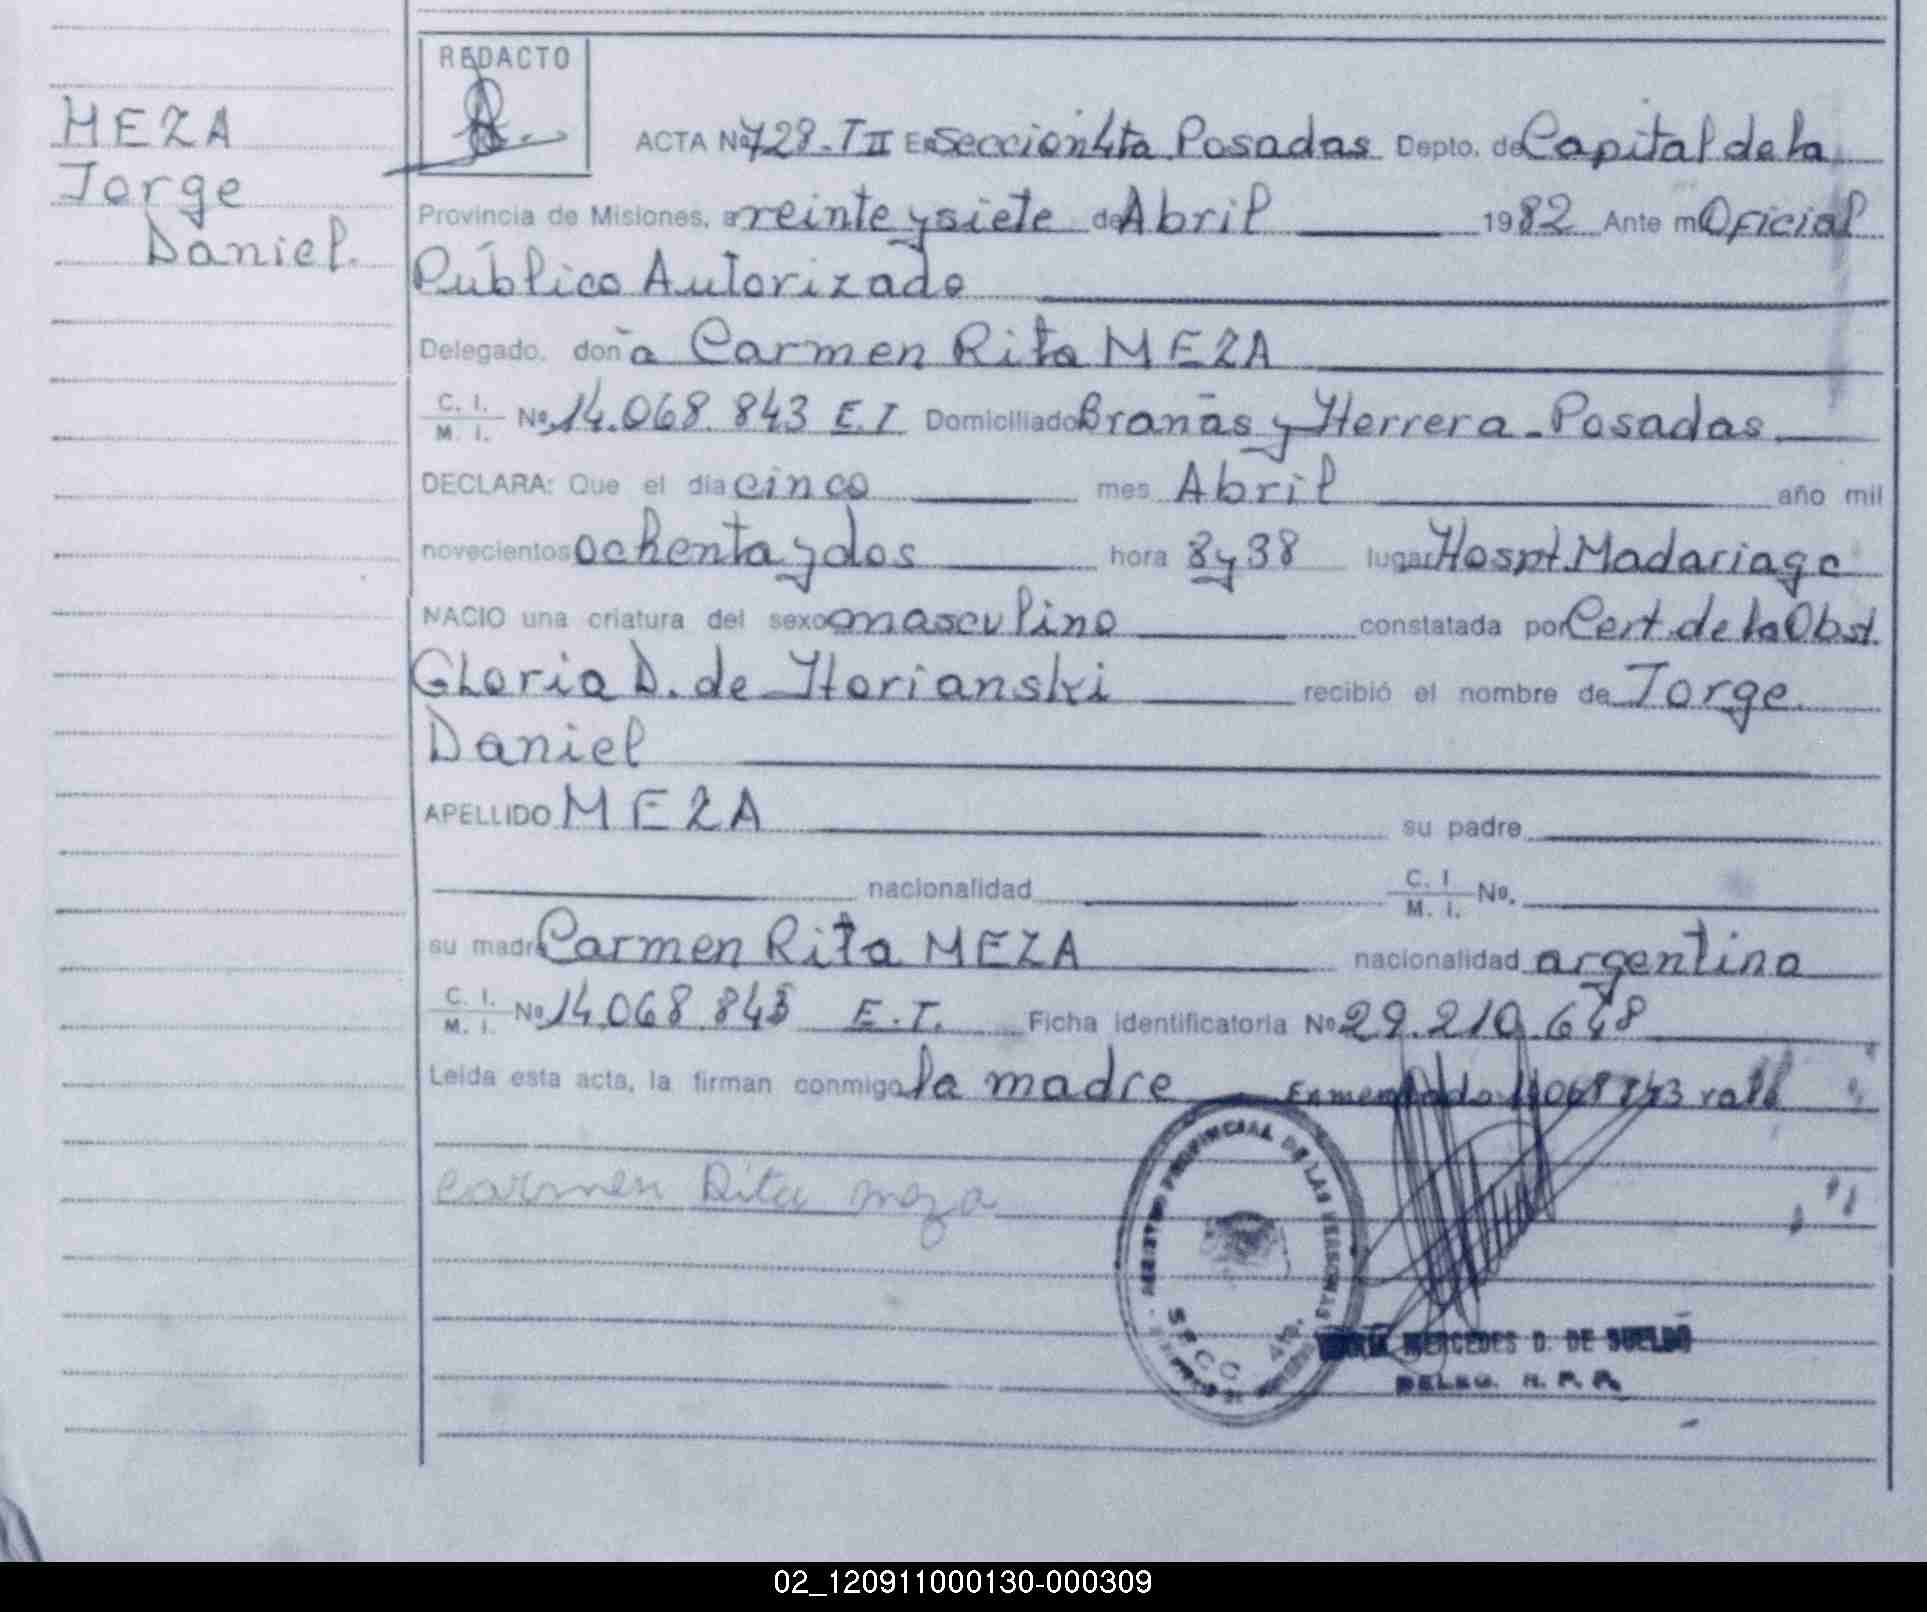 REDACTO
MEZA
Jorge
Daniel.
ACTA Nº 728.-T II En Sección 4ta. Posadas Depto. de Capital de la
Provincia de Misiones, a veinte y siete de Abril 1982 Ante mí Oficial
Público Autorizado
Delegado, doña Carmen Rita MEZA
C. I. / M. I. Nº 14.068.843 E.T Domiciliado Brañas y Herrera - Posadas.
DECLARA: Que el día cinco mes Abril año mil
novecientos ochenta y dos hora 8 y 38 lugar Hospt. Madariaga
NACIO una criatura del sexo masculino constatada por Cert. de la Obst.
Gloria D. de Horianski recibió el nombre de Jorge
Daniel
APELLIDO MEZA su padre
nacionalidad C. I. / M. I. Nº.
su madre Carmen Rita MEZA nacionalidad argentina
C. I. / M. I. Nº 14.068.843 E.T. Ficha identificatoria Nº 29.210.648
Leída esta acta, la firman conmigo la madre Enmendado 14068843 vale
carmen Rita meza
REGISTRO PROVINCIAL DE LAS PERSONAS
SECC 4ta.
MARÍA MERCEDES D. DE SUELDO
DELEG. R. P. P.
02_120911000130-000309